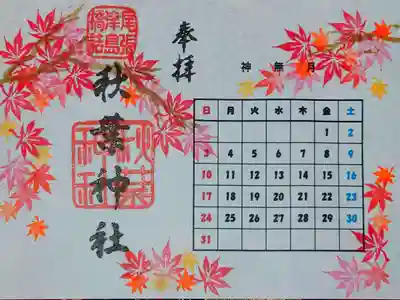 奉拝
秋葉神社
神無月
日 月 火 水 木 金 土
1 2
3 4 5 6 7 8 9
10 11 12 13 14 15 16
17 18 19 20 21 22 23
24 25 26 27 28 29 30
31